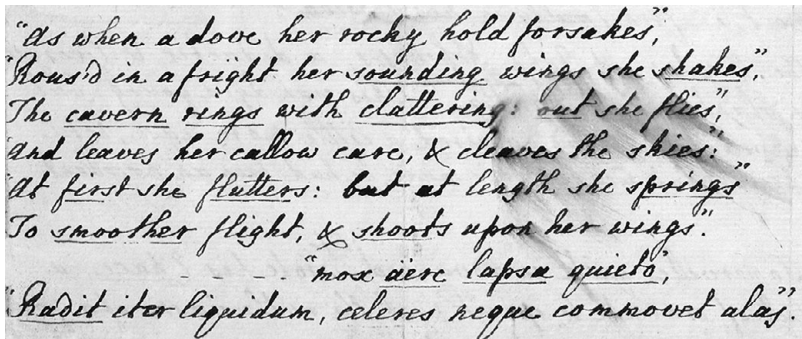 "As when a dove her rocky hold forsakes",
"Rous'd in a fright her sounding wings she shakes",
The cavern rings with clattering: out she flies",
"And leaves her callow care, & cleaves the skies:"
"At first she flutters: but at length she springs"
To smoother flight, & shoots upon her wings".
- - - - "mox aëre lapsa quieto",
"Radit iter liquidum, celeres neque commovet alas".